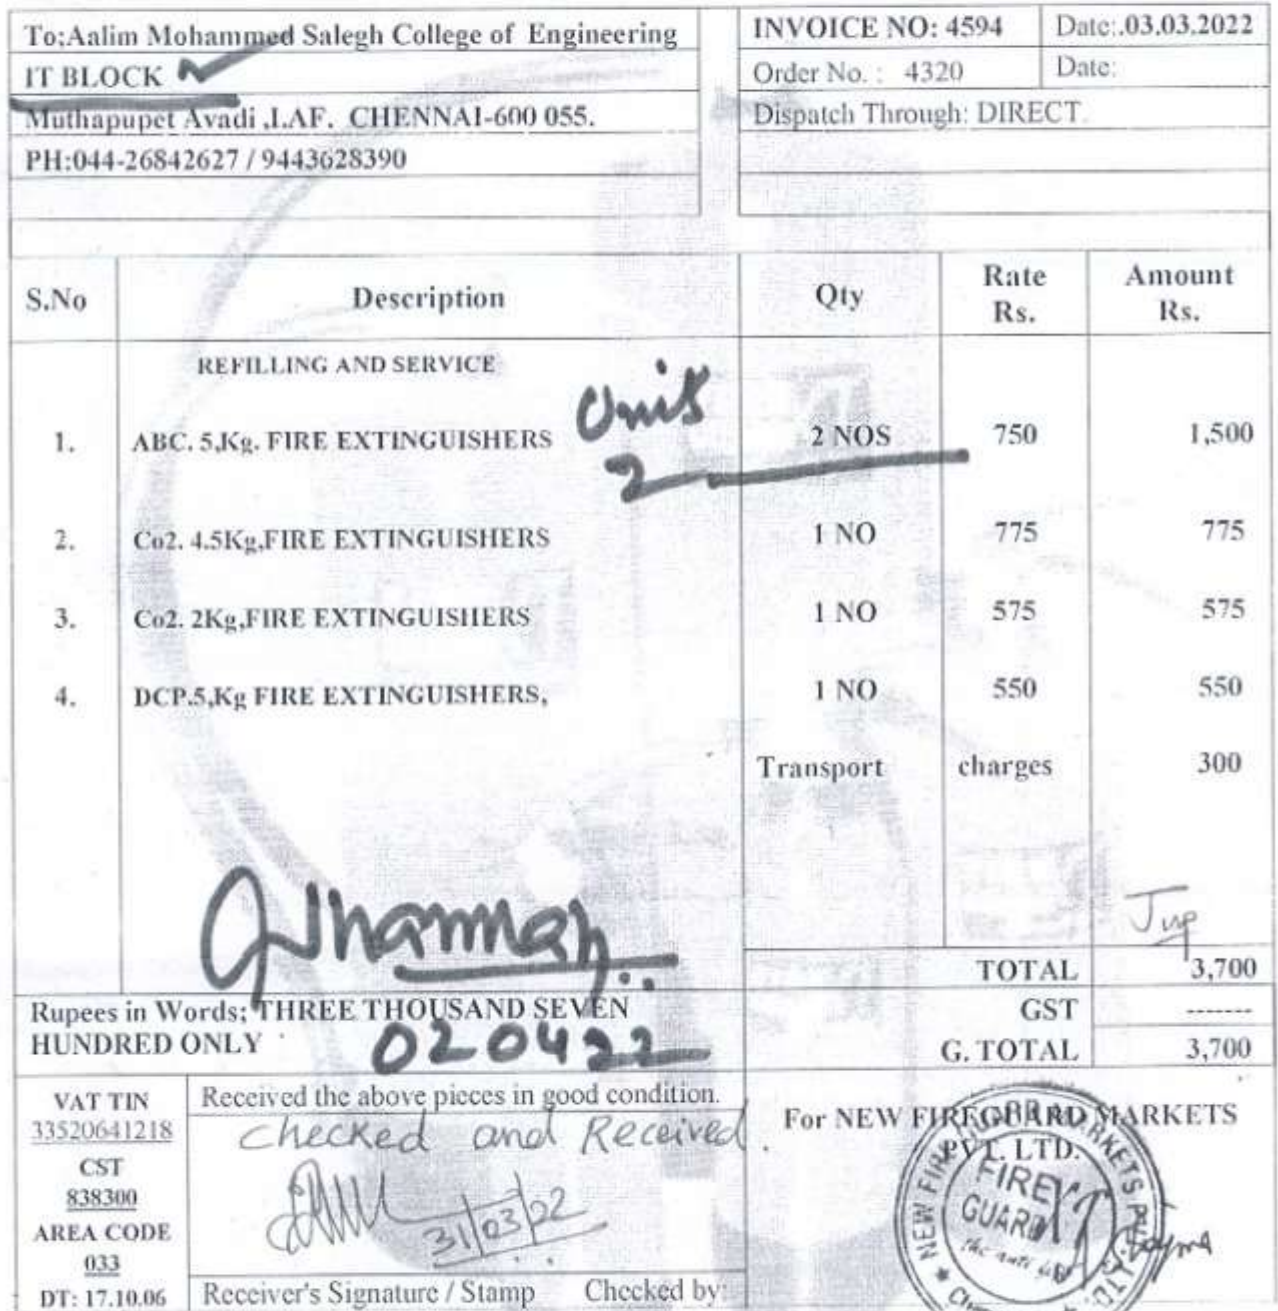 To;Aalim Mohammed Salegh College of Engineering
IT BLOCK
Muthapupet Avadi ,I.AF. CHENNAI-600 055.
PH:044-26842627 / 9443628390
INVOICE NO: 4594 Date:.03.03.2022
Order No. : 4320 Date:
Dispatch Through: DIRECT.
S.No Description Qty Rate Rs. Amount Rs.
REFILLING AND SERVICE
Units
1. ABC. 5,Kg. FIRE EXTINGUISHERS 2 NOS 750 1,500
2
2. Co2. 4.5Kg,FIRE EXTINGUISHERS 1 NO 775 775
3. Co2. 2Kg,FIRE EXTINGUISHERS 1 NO 575 575
4. DCP.5,Kg FIRE EXTINGUISHERS, 1 NO 550 550
Transport charges 300
TOTAL 3,700
Rupees in Words; THREE THOUSAND SEVEN
HUNDRED ONLY
020422
GST -------
G. TOTAL 3,700
VAT TIN
33520641218
CST
838300
AREA CODE
033
DT: 17.10.06
Received the above pieces in good condition.
Checked and Received.
31/03/22
Receiver's Signature / Stamp Checked by:
For NEW FIREGUARD MARKETS
PVT. LTD.
FIRE
GUARD